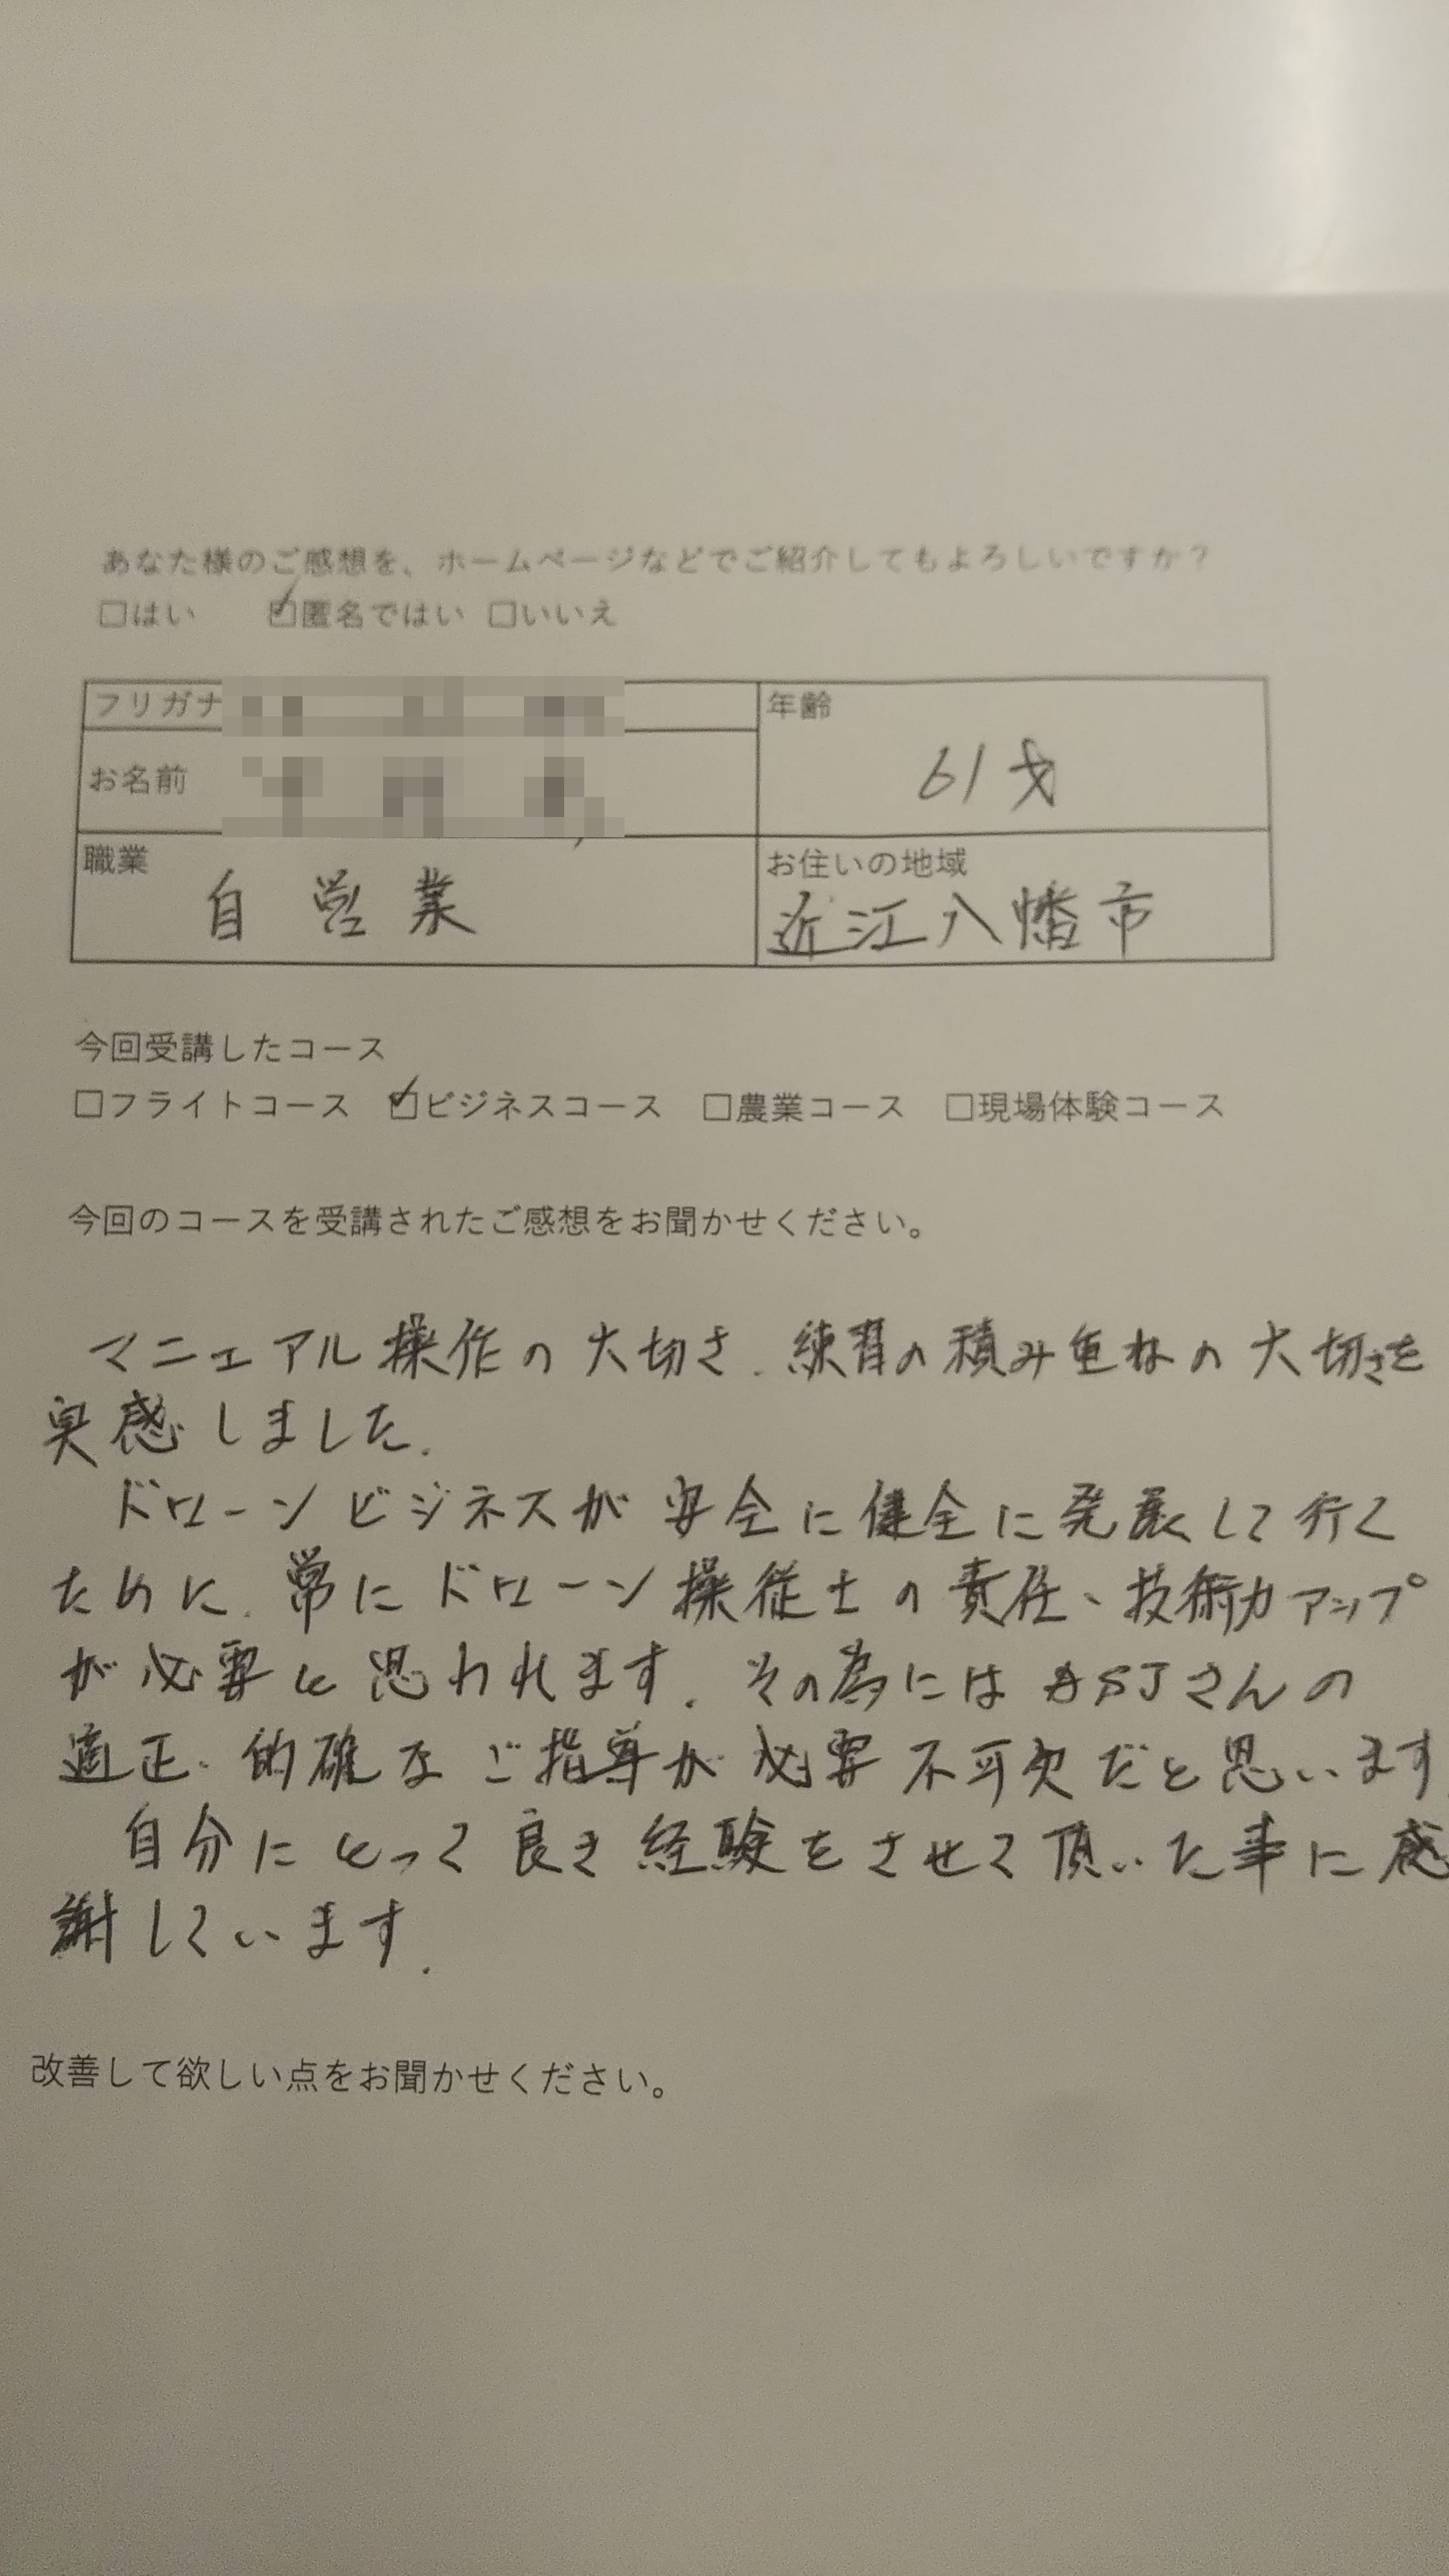 あなた様のご感想を、ホームページなどでご紹介してもよろしいですか？
□はい ☑匿名ではい □いいえ
フリガナ
年齢
61才
お名前
職業
自営業
お住いの地域
近江八幡市
今回受講したコース
□フライトコース ☑ビジネスコース □農業コース □現場体験コース
今回のコースを受講されたご感想をお聞かせください。
マニュアル操作の大切さ、練習の積み重ねの大切さを
実感しました.
ドローンビジネスが安全に健全に発展して行く
ために、常にドローン操従士の責任、技術力アップ
が必要と思われます. その為には SJさんの
適正、的確なご指導が必要不可欠だと思います
自分にとって良き経験をさせて頂いた事に感
謝しています.
改善して欲しい点をお聞かせください。